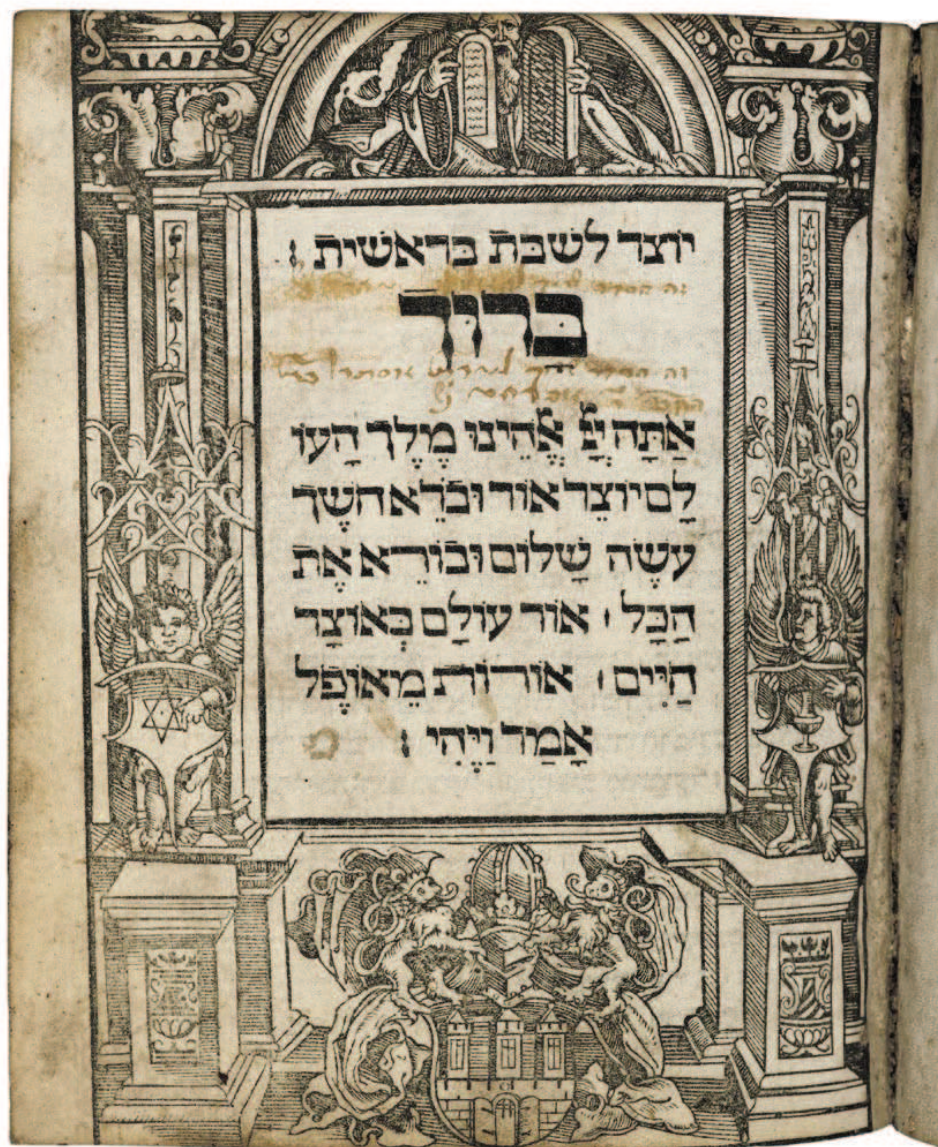 יוצר לשבת בראשית :
זה הסדר
ברוך
זה הסדר
אַתָּה יְיָ ﭏֱהֵינוּ מֶלֶךְ הָעוֹ
לָם יוֹצֵר אוֹר וּבֹרֵא חֹשֶׁךְ
עֹשֶׂה שָׁלוֹם וּבוֹרֵא אֶת
הַכֹּל : אוֹר עוֹלָם בְּאוֹצַר
חַיִּים : אוֹרוֹת מֵאוֹפֶל
אָמַר וַיֶּהִי :